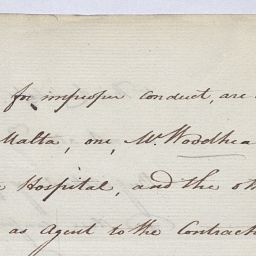 for improper conduct, are
Malta, one, Mr. Woodhea
Hospital, and the ot
as Agent to the Contrach